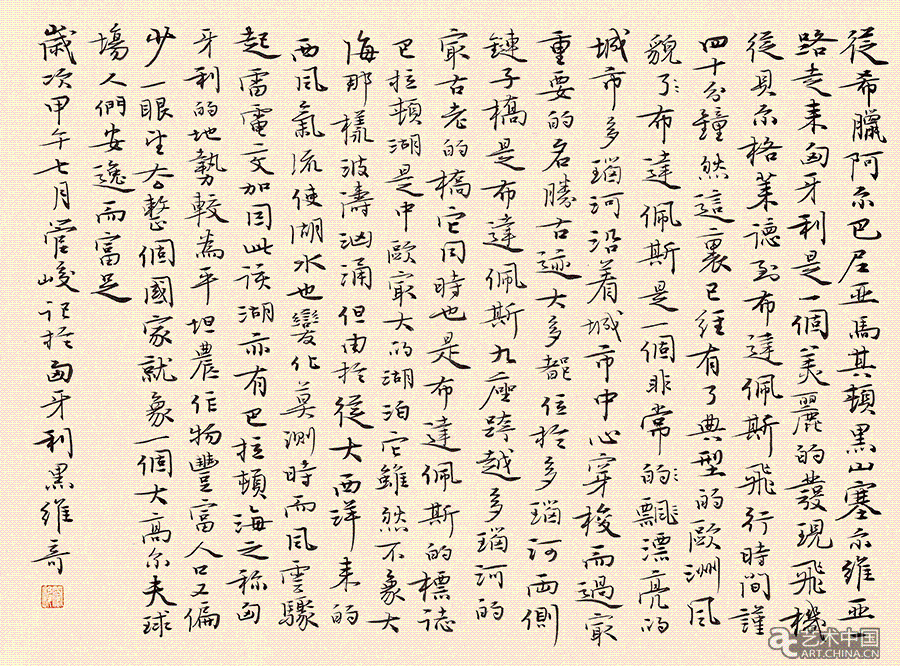 從希臘阿尔巴尼亚馬其頓黑山塞尔維亚
路走来匈牙利是一個美麗的發現飛機
從貝尔格莱德到布達佩斯飛行時間謹
四十分鐘然這裏已经有了典型的歐洲風
貌了布達佩斯是一個非常的飄漂亮的
城市多瑙河沿着城市中心穿梭而過最
重要的名勝古迹大多都位於多瑙河两側
鏈子橋是布達佩斯九座跨越多瑙河的
最古老的橋它同時也是布達佩斯的標誌
巴拉頓湖是中歐最大的湖泊它雖然不象大
海那樣波濤汹涌但由於從大西洋来的
西風氣流使湖水也變化莫測時而風雲驟
起雷電交加因此该湖亦有巴拉頓海之称匈
牙利的地勢較為平坦農作物豐富人口又偏
少一眼望去整個國家就象一個大高尔夫球
場人們安逸而富足
歲次甲午七月管峻记於匈牙利黑維哥
艺术中国
ART.CHINA.CN